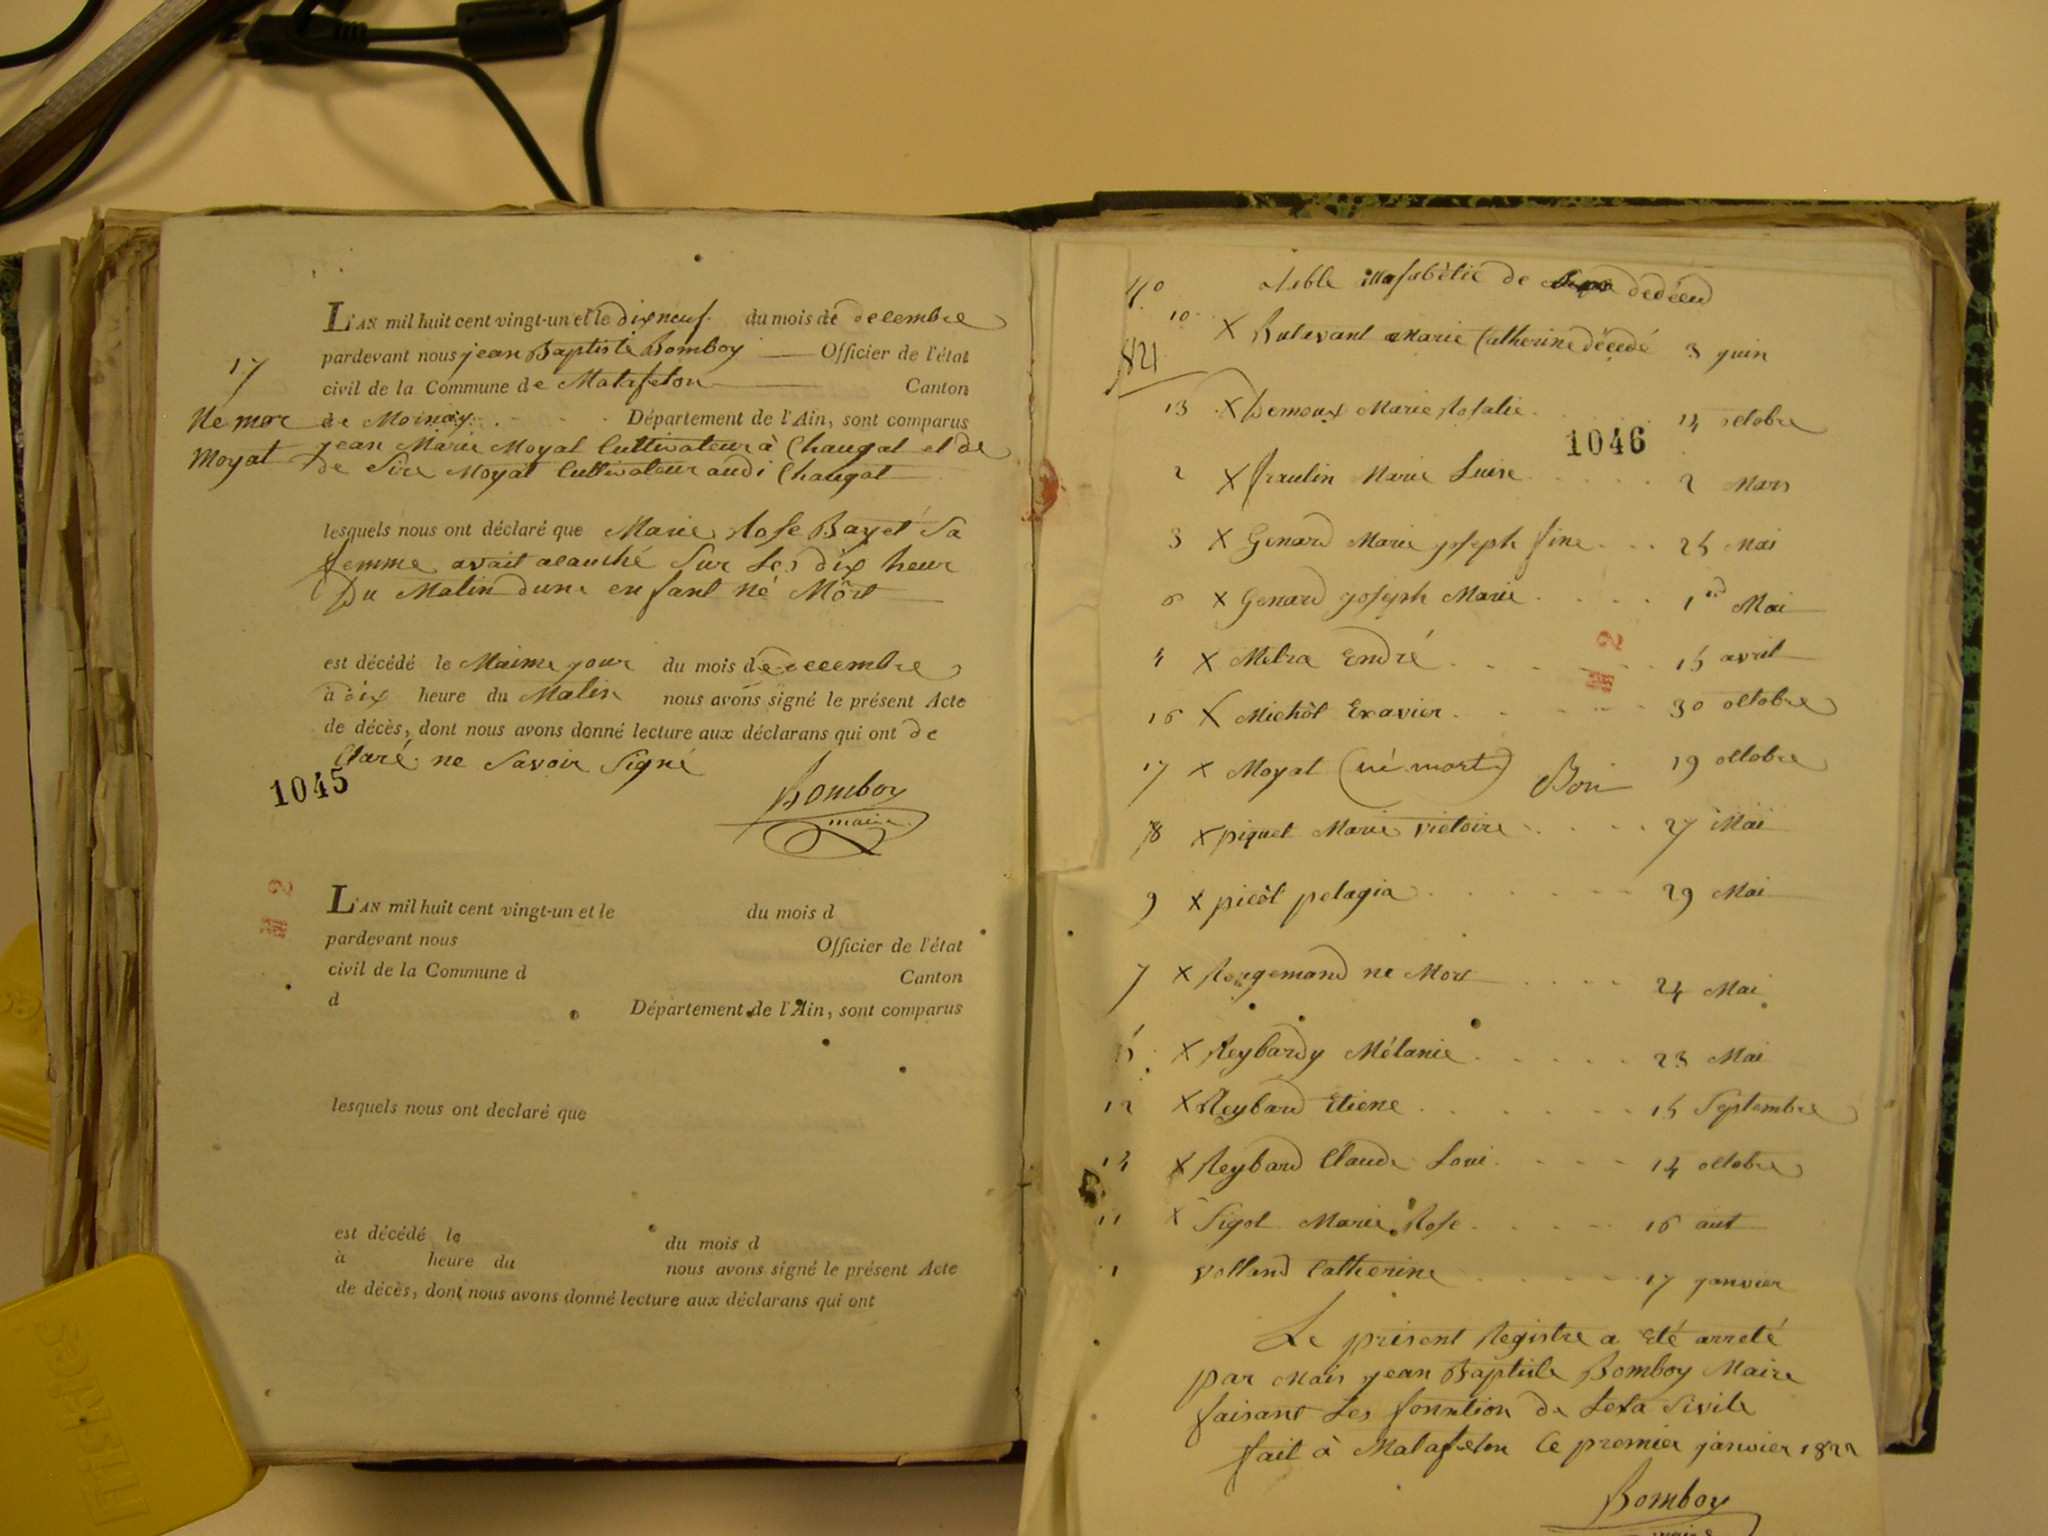 L'AN mil huit cent vingt-un et le dix neuf du mois de decembre
pardevant nous jean Baptiste Bomboy Officier de l'état
17
civil de la Commune de Matafelon Canton
Né mor de Moinay Département de l'Ain, sont comparus
Moyat jean Marie Moyat Cultivateur à Chaugat et de
de Sire Moyat Cultivateur audi Chaugat
lesquels nous ont déclaré que Marie Rose Bayet Sa
femme avait acauché Sur Les dix heur
Du Matin dune enfant né Mort
est décédé le Maime jour du mois de decembre
à dix heure du Matin nous avons signé le présent Acte
de décès, dont nous avons donné lecture aux déclarans qui ont de
Claré ne Savoir Signé
1045
Bomboy
maire
L'AN mil huit cent vingt-un et le du mois d
pardevant nous Officier de l'état
civil de la Commune d Canton
d Département de l'Ain, sont comparus
lesquels nous ont declaré que
est décédé le du mois d
à heure du nous avons signé le présent Acte
de décès, dont nous avons donné lecture aux déclarans qui ont
Table de dédéeu
10 X Butavant Marie Catherine décedé 3 juin
1821
13 X Demoux Marie Rosalie 14 octobre
1046
2 X fraulin Marie Luise 2 Mars
3 X Genard Marie joseph fine 25 Mai
6 X Genard joseph Marie 1er Mai
4 X Metra Endré 15 avril
16 X Michôt Exavier 30 octobre
17 X Moyat (né mort) Bon 19 octobre
8 X piquet Marie victoire 27 Mai
9 X picôt pelagia 29 Mai
7 X Rougemand ne Mort 24 Mai
5 X Reybardy Mélanie 23 Mai
12 X Reybard Etiene 15 Septembre
14 X Reybard Claude Loui 14 octobre
11 X Sigot Marie Rose 16 aut
1 Volland Catherine 17 janvier
Le présent Registre a Eté arreté
par Mois jean Baptiste Bomboy Maire
faisant Les fonntion de Leta Sivile
fait à Matafelon Ce premier janvier 1822
Bomboy
maire